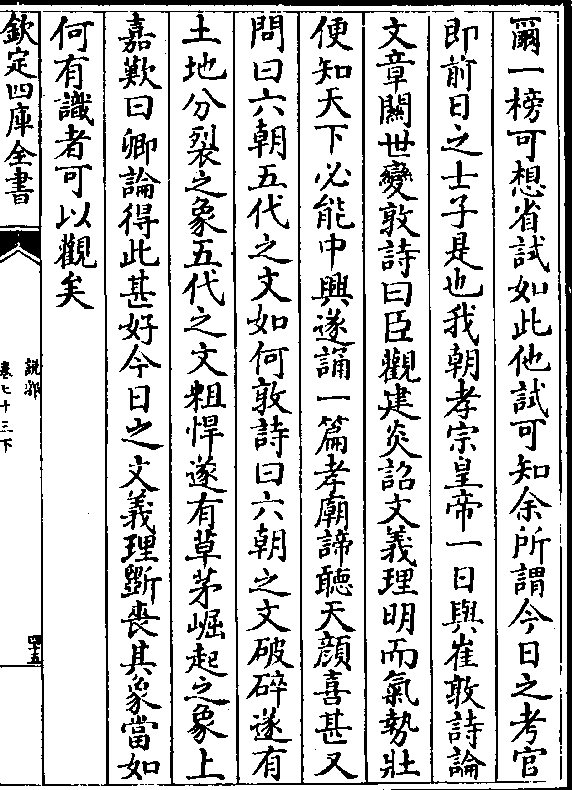 爾一榜可想省試如此他試可知余所謂今日之考官
即前日之士子是也我朝孝宗皇帝一日與崔敦詩論
文章關世變敦詩曰臣觀建炎詔文義理明而氣勢壯
便知天下必能中興遂誦一篇孝廟諦聽天顔喜甚又
問曰六朝五代之文如何敦詩曰六朝之文破碎遂有
土地分裂之象五代之文粗悍遂有草茅崛起之象上
嘉歎曰卿論得此甚好今日之文義理斵喪其象當如
何有識者可以觀矣
欽定四庫全書
說郛
卷七十三下
四十五